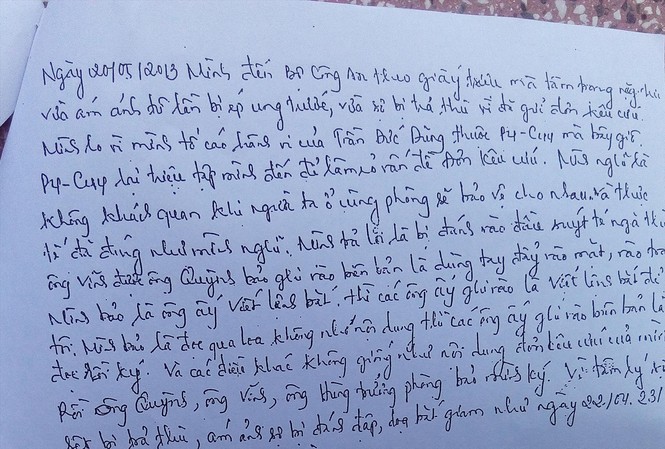 Ngày 20/05/2013 Mình đến Bộ Công An theo giấy triệu mà tâm trạng nặng
vừa ám ảnh từ lần bị ép cung trước, vừa sợ bị trả thù vì đã gửi đơn kêu cứu.
Mình lo vì mình tố cáo hành vi của Trần Đức Dũng thuộc P4-C44 mà bây giờ
P4-C44 lại triệu tập mình đến để làm rõ vấn đề Đơn kêu cứu. Mình nghĩ là
không khách quan khi người ta ở cùng phòng sẽ bảo vệ cho nhau. và thực
tế đã đúng như mình nghĩ. Mình trả lời là bị đánh vào đầu suýt té ngã thì
ông Vinh được ông Quỳnh bảo ghi vào biên bản là dùng tay đẩy vào mặt, vào
Mình bảo là ông ấy viết lăng bát, thì các ông ấy ghi vào là viết lăng bát
trì. Mình bảo là đọc qua loa không như nội dung thì các ông ấy ghi vào biên bản là
đọc rồi ký. Và các điều khác không giống như nội dung đơn kêu cứu của mình
Rồi ông Quỳnh, ông Vinh, ông Hùng trưởng phòng bảo mình ký. Vì tâm lý
bị trả thù, ám ảnh sợ bị đánh đập, dọa bắt giam như ngày 22/04. 23/